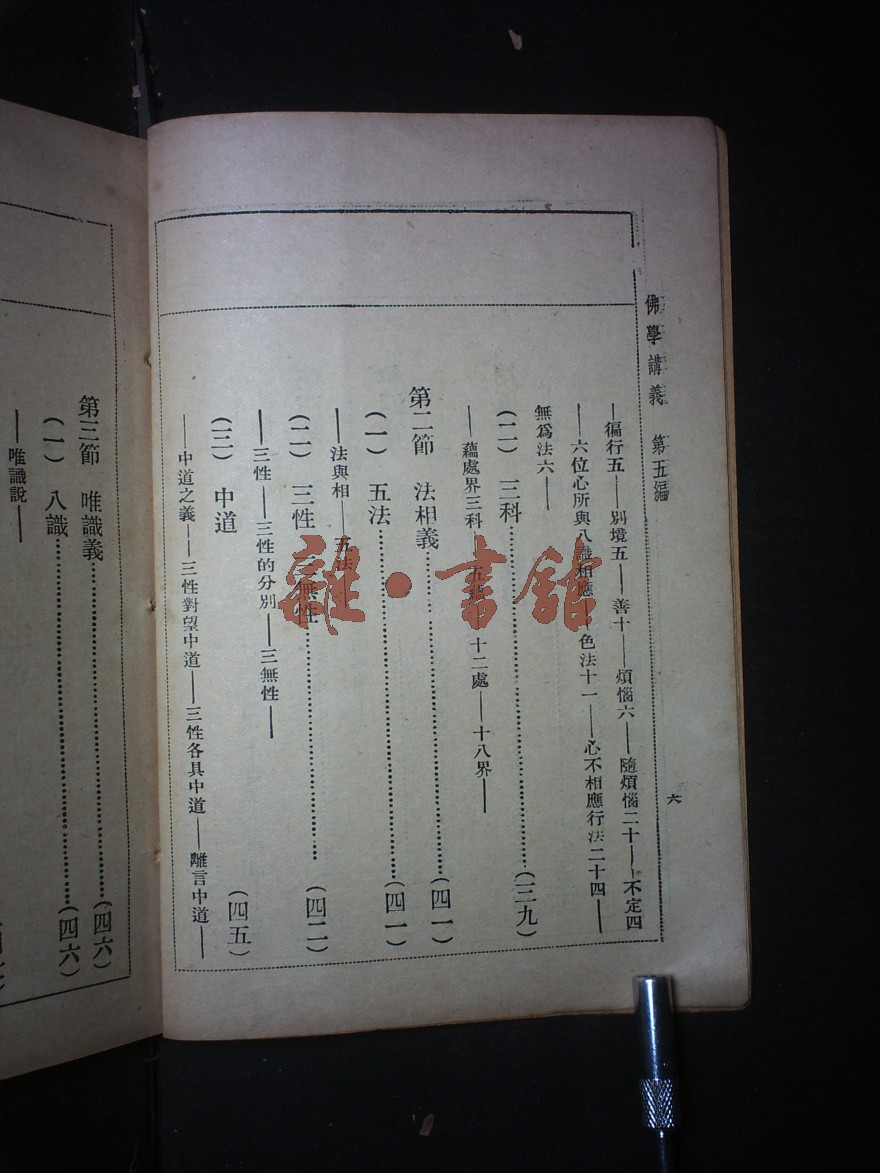 佛學講義 第五編
六
—徧行五——別境五——善十——煩惱六——隨煩惱二十——不定四
——六位心所與八識相應——色法十一——心不相應行法二十四——
無爲法六——
(二) 三科…………(三九)
——蘊處界三科——五蘊——十二處——十八界——
第二節 法相義…………(四一)
(一) 五法…………(四一)
——法與相——五法——
(二) 三性 三無性…………(四二)
——三性——三性的分別——三無性——
(三) 中道 (四五)
——中道之義——三性對望中道——三性各具中道——離言中道——
第三節 唯識義…………(四六)
(一) 八識…………(四六)
——唯識說——
雜·書館